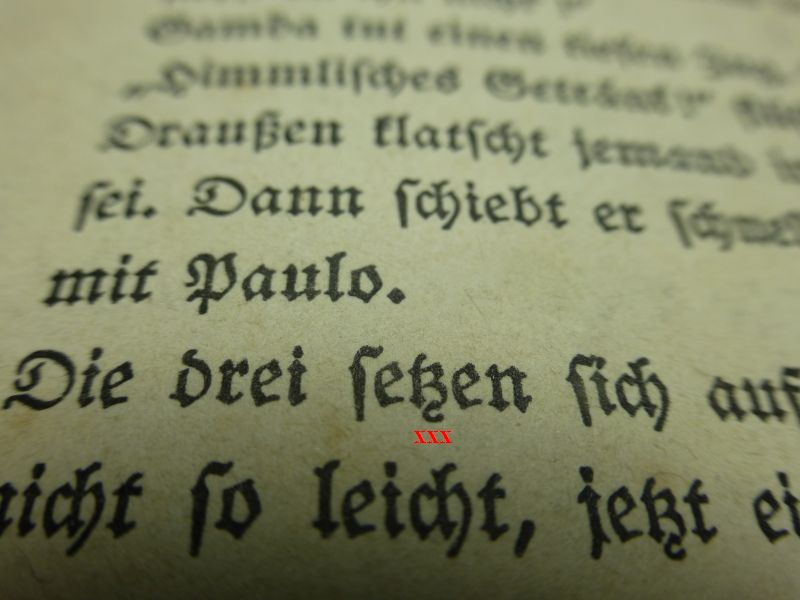 Samba tut einen tiefen Zug.
„Himmlisches Getränk!"
Draußen klatscht jemand
sei. Dann schiebt er
mit Paulo.
Die drei setzen sich auf
xxx
nicht so leicht, jetzt